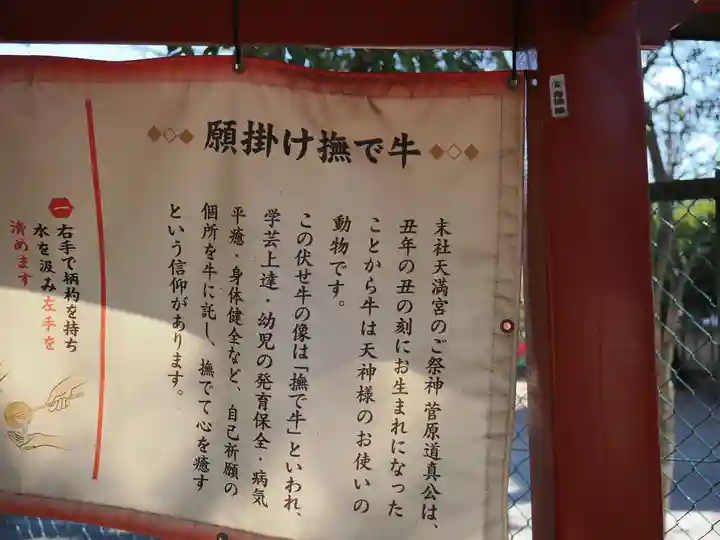 願掛け撫で牛
末社天満宮のご祭神菅原道真公は、
丑年の丑の刻にお生まれになった
ことから牛は天神様のお使いの
動物です。
この伏せ牛の像は「撫で牛」といわれ、
学芸上達・幼児の発育保全・病気
平癒・身体健全など、自己祈願の
個所を牛に託し、撫でて心を癒す
という信仰があります。
一
右手で柄杓を持ち
水を汲み左手を
清めます